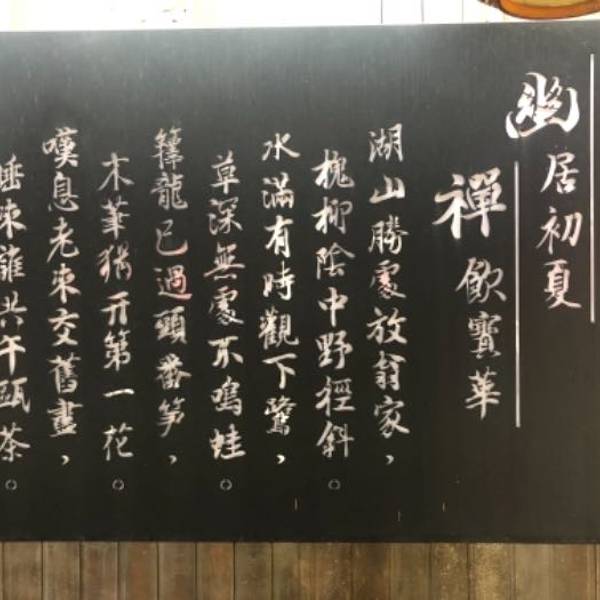 幽居初夏
禪飲寶華
湖山勝處放翁家,
槐柳陰中野徑斜。
水滿有時觀下鷺,
草深無處不鳴蛙。
籜龍已過頭番笋,
木筆猶開第一花。
嘆息老來交舊盡,
睡來誰共午甌茶。